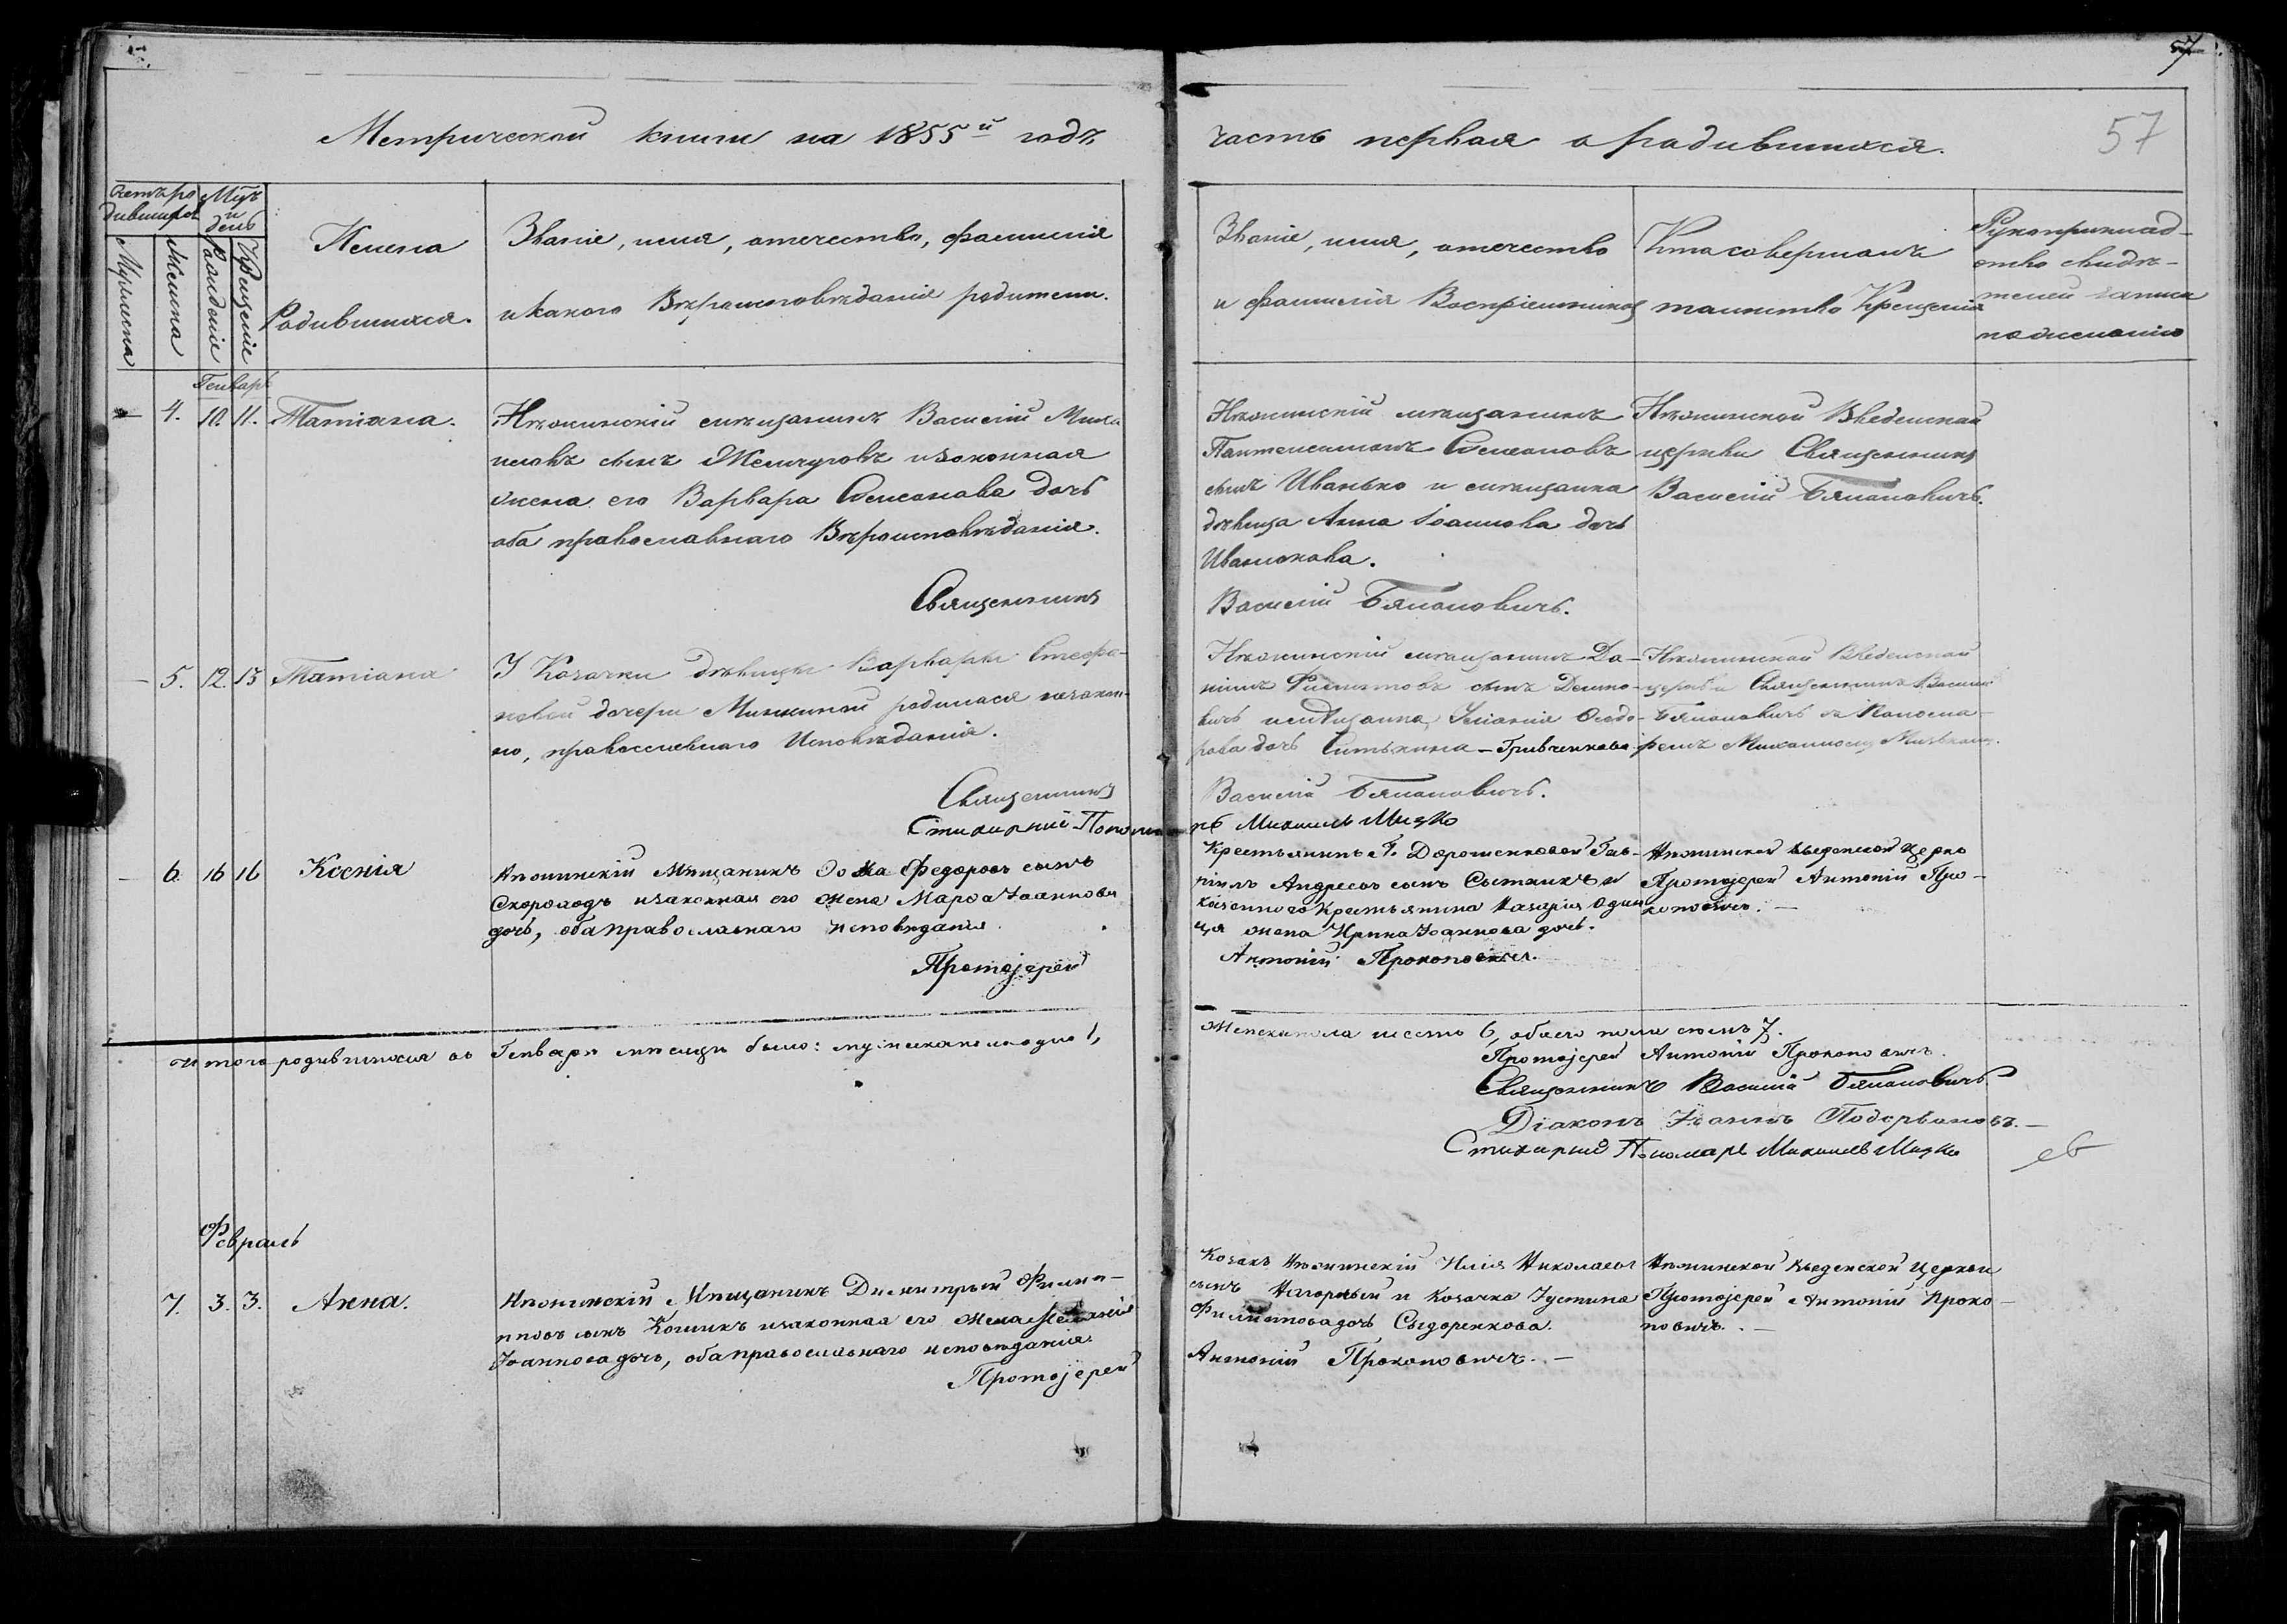 57
Метрической книги на 1855й годъ
часть первая о родившихся.
57
Счетъ ро
дившихся
Мцъ
и
день
Мужеска
Женска
Рожденіе
Крещеніе
Имена
Родившихся.
Званіе, имя, отечество, фамилія
и какого Вѣроисповѣданія родители.
Званіе, имя, отечество
и фамилія Воспріемниковъ
Кто совершалъ
таинство Крещенія
Рукоприклад-
ство свидѣ-
телей записи
по желанію
Генварь
4. 10. 11. Татіана.
Нѣжинскій мѣщанинъ Василій Миха
иловъ сынъ Жемчуговъ и законная
жена его Варвара Симеонова дочь
оба православнаго Вѣроисповѣданія.
Священникъ
Нѣжинскій мѣщанинъ
Пантелеимонъ Симеоновъ
сынъ Иванько и мѣщанка
дѣвица Анна Іоаннова дочь
Иванюкова.
Василій Бялановичъ.
Нѣжинской Введенской
церкви Священникъ
Василій Бялановичъ.
5. 12. 13 Татіана
У Козачки дѣвицы Варвары Стефа-
новой дочери родилася незакон-
но, православнаго Исповѣданія.
Священникъ
Стихарный Пономарь Михаилъ Мицко
Нѣжинскій мѣщанинъ Да-
ніилъ Филиповъ сынъ Демко-
вичъ и мѣщанка Ѳеодо-
рова дочь Ситькина-Гривченкова
Василій Бялановичъ.
Нѣжинской Введенской
церкви Священникъ Василій
Бялановичъ съ Понома-
ремъ Михаиломъ
6. 16 16 Ксенія
Нѣжинскій Мѣщанинъ Ѳома Федоровъ сынъ
Скороходъ и законная его жена Марѳа Іоаннова
дочь, оба православнаго исповѣданія.
Протоіерей
Крестьянинъ Г. Дорошенковой Гав-
ріилъ Андреевъ сынъ Сытникъ и
казеннаго Крестьянина Назарія Один
ця жена Ирина Іоаннова дочь.
Антоній Прокоповичъ.
Нѣжинской Введенской Церкви
Протоіерей Антоній Про-
коповичъ.
Итого родившихся въ Генваре мѣсяцѣ было: мужеска пола одно 1,
Женска пола шесть 6, обоего пола семь 7.
Протоіерей Антоній Прокоповичъ.
Священникъ Василій Бялановичъ
Діаконъ Іоаннъ Подервановъ.
Стихарный Пономарь Михаилъ Мицко
Февраль
7. 3. 3. Анна.
Нѣжинскій Мѣщанинъ Димитрый Филип-
повъ сынъ Кошикъ и законная его жена Меланія
Іоаннова дочь, оба православнаго исповѣданія
Протоіерей
Козакъ Нѣжинскій Илія Николаевъ
сынъ Нагорный и Козачка Іустина
Филиппова дочь Сыдоренкова.
Антоній Прокоповичъ.
Нѣжинской Введенской Церкви
Протоіерей Антоній Проко-
повичъ.